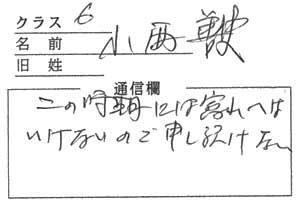 クラス 6
名前 小西
旧姓
通信欄
この時期には帰れへは
いけないので申し訳けない